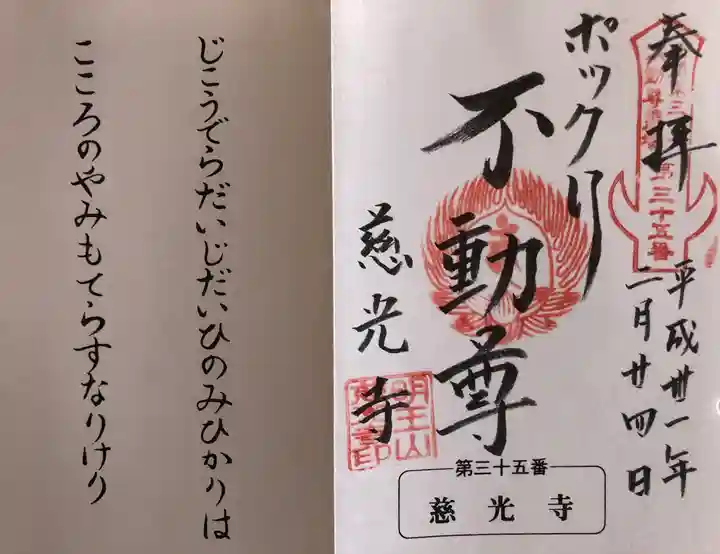 奉拝
第三十五番
平成廿一年
二月廿四日
ポックリ
不動尊
慈光寺
明王山
第三十五番
慈光寺
じこうでらだいじだいひのみひかりは
こころのやみもてらすなりけり